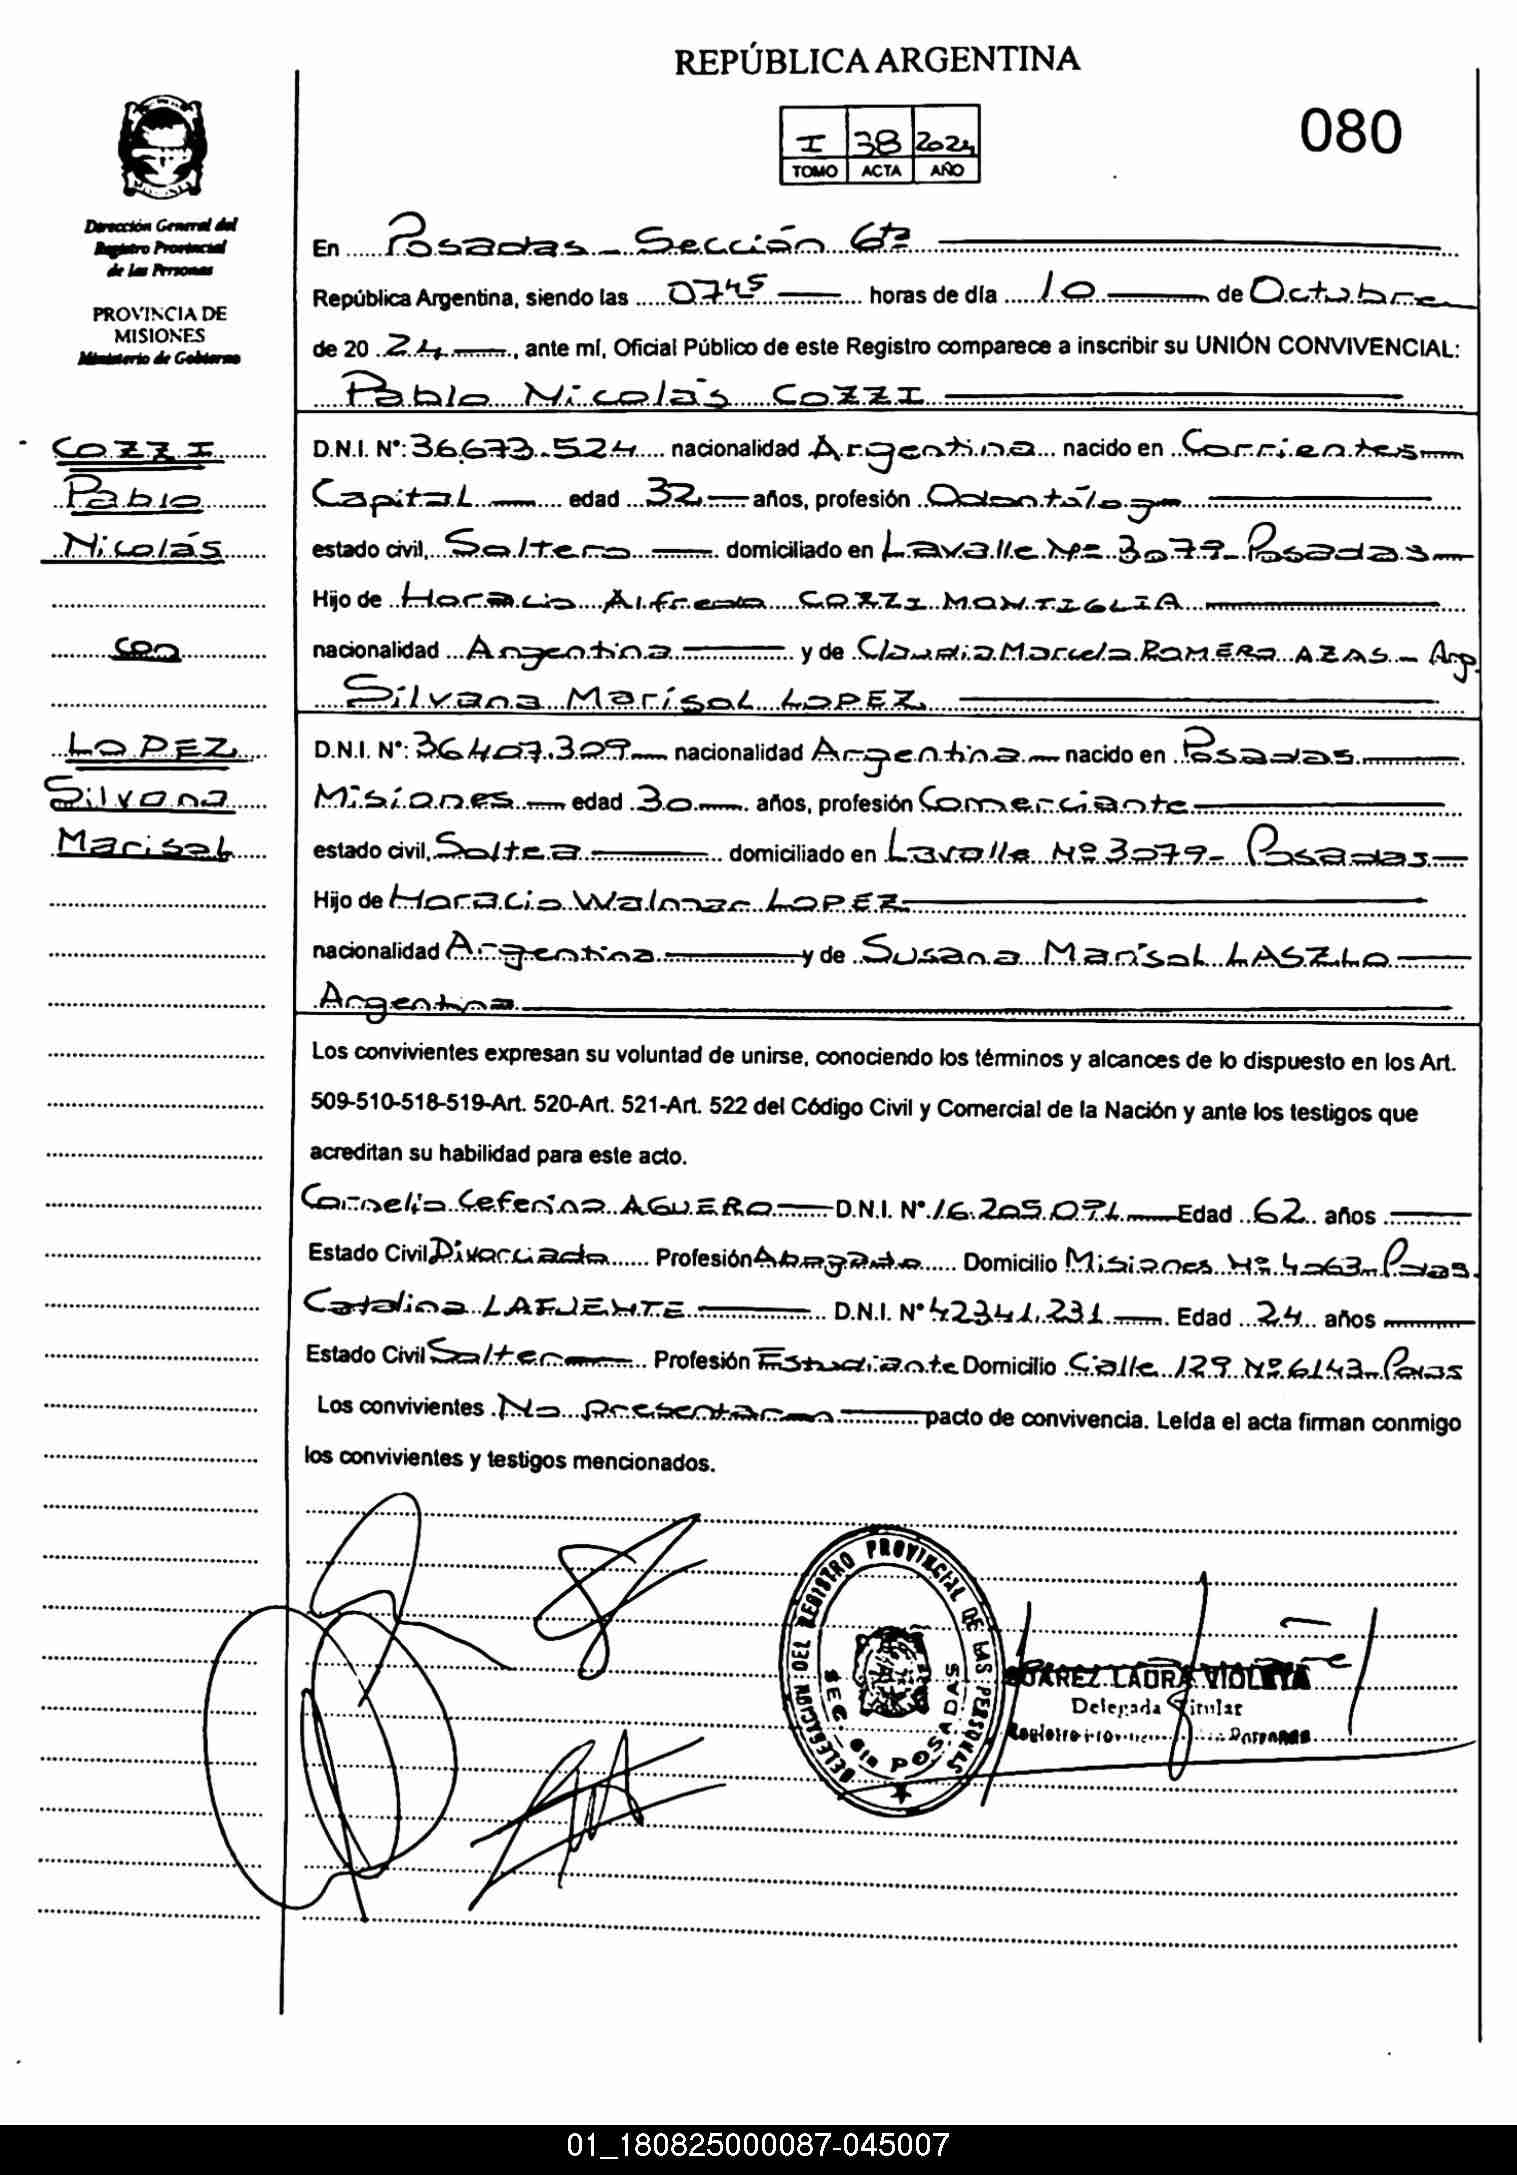 REPÚBLICA ARGENTINA
I 38 2024
TOMO ACTA AÑO
080
Dirección General del
Registro Provincial
de las Personas
PROVINCIA DE
MISIONES
Ministerio de Gobierno
En Posadas - Sección 6ta
República Argentina, siendo las 0745 horas de día 10 de Octubre
de 20 24, ante mí, Oficial Público de este Registro comparece a inscribir su UNIÓN CONVIVENCIAL:
Pablo Nicolás COZZI
COZZI
Pablo
Nicolás
con
LOPEZ
Silvana
Marisol
D.N.I. N°: 36.673.524 nacionalidad Argentina nacido en Corrientes
Capital edad 32 años, profesión Odontólogo
estado civil, Soltero domiciliado en Lavalle Nº 3079 - Posadas
Hijo de Horacio Alfredo COZZI MONTIGLIA
nacionalidad Argentina y de Claudia Marcela ROMERO AZAS - Arg.
Silvana Marisol LOPEZ
D.N.I. N°: 36.407.309 nacionalidad Argentina nacido en Posadas
Misiones edad 30 años, profesión Comerciante
estado civil, Soltera domiciliado en Lavalle Nº 3079 - Posadas
Hijo de Horacio Walmar LOPEZ
nacionalidad Argentina y de Susana Marisol LASZLO
Argentina
Los convivientes expresan su voluntad de unirse, conociendo los términos y alcances de lo dispuesto en los Art.
509-510-518-519-Art. 520-Art. 521-Art. 522 del Código Civil y Comercial de la Nación y ante los testigos que
acreditan su habilidad para este acto.
Cornelio Ceferino AGUERO D.N.I. N° 16.205.071 Edad 62 años
Estado Civil Divorciado Profesión Abogado Domicilio Misiones Nº 4063 - Pdas.
Catalina LAFUENTE D.N.I. N° 42341.231 Edad 24 años
Estado Civil Soltera Profesión Estudiante Domicilio Calle 129 Nº 6143 - Pdas
Los convivientes No presentaron pacto de convivencia. Leída el acta firman conmigo
los convivientes y testigos mencionados.
DELEGACION DEL REGISTRO PROVINCIAL DE LAS PERSONAS
SEC. 6ta POSADAS
SUAREZ LAURA VIOLETA
Delegada Titular
01_180825000087-045007